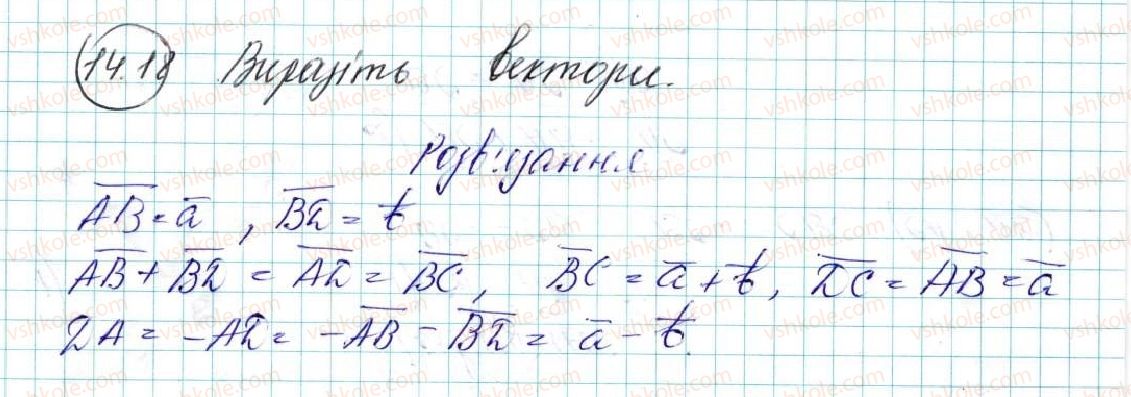 14.18 Виразіть вектори.
Розв'язання
AB = a , BD = b
AB + BD = AD = BC , BC = a + b , DC = AB = a
DA = -AD = -AB - BD = a - b